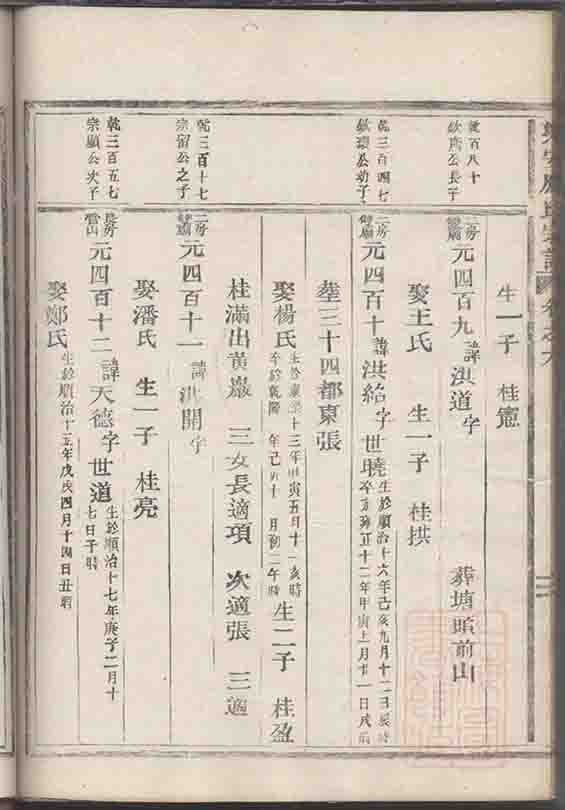 氏宗譜 卷之六
生一子 桂憲
乾百八十
欽 公長子
二房
元四百九 諱洪道 字 葬塘頭前山
娶王氏 生一子 桂拱
乾三百四七
欽 公幼子
二房
元四百十 諱洪給 字世曉 生於順治十六年己亥九月十二日辰時
卒於雍正十二年甲寅 月廿一日戌時
塟三十四都東張
娶楊氏 生於康熙十三年甲寅五月十 亥時
卒於乾隆 年己 十 月初二午時 生二子 桂盈
桂滿出黃巖 三女長適項 次適張 三適
乾三百十七
宗留公之子
二房
元四百十一 諱洪開 字
娶潘氏 生一子 桂亮
乾三百五七
宗顯公次子
長房
雪山
元四百十二 諱天德 字世道 生於順治十七年庚子二月十
七日子時
娶鄭氏 生於順治十五年戊戌四月十四日丑時